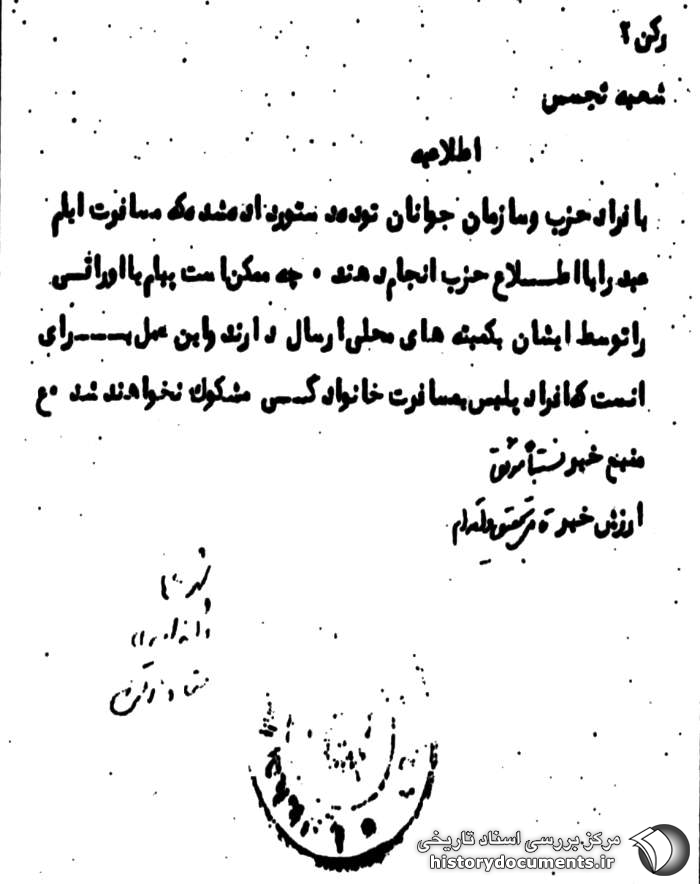 رکن ۲
شعبه تجسس
اطلاعیه
بافراد حزب وسازمان جوانان توده دستور داده شده که مسافرت ایام
عید را با اطلاع حزب انجام دهند ۰ چه ممکن است پیام یا اوراقی
را توسط ایشان بکمیته های محلی ارسال دارند واین عمل برای
آنست که افراد پلیس بمسافرت خانوادگی مشکوک نخواهند شد ۰ع
منبع خبر نسبتاً موثق
ارزش خبر قابل تحقیق و اقدام
مرکز بررسی اسناد تاریخی
historydocuments.ir